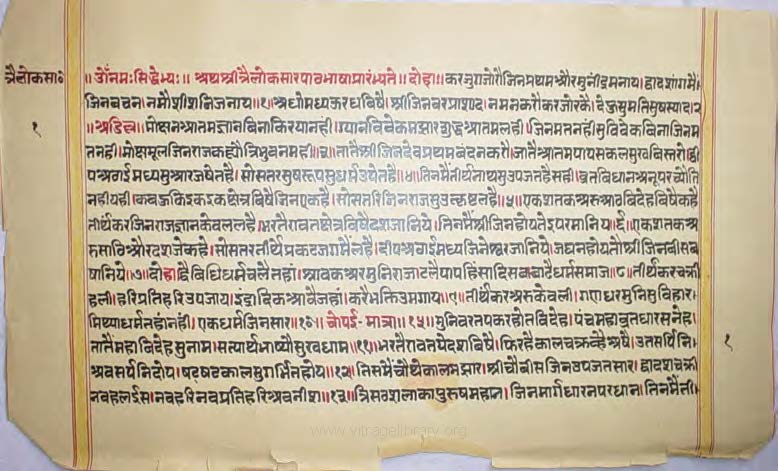 त्रैलोकसा०
१
॥ उोंनमःसिद्धेभ्यः॥ अथश्रीत्रैलोकसारपाठभाषाप्रारंभ्यते॥ दोहा॥ करजुगजोरौजिनप्रथमश्रौरमुनींद्रमनाय॥ द्वादशांगमै
जिनबचन।नमौशीशनिजनाय॥१॥अधोमध्यऊरधविषै।श्रीजिनवरप्रासाद।नमनकरौकरजोरकै।देऊसुमतिसुषस्याद॥२
॥अडिल्ल॥मोक्षनआतमज्ञानबिनाकिरयानहीं।ध्यानविवेकमझारशुद्धआतमलही॥जिनमतनहीसुविवेकबिनाजिनम
तनही।मोक्षमूलजिनराजकह्यौत्रिभुवनमही॥३॥तातैश्रीजिनदेवप्रथमबंदनकरौ।जातैआतमपायसकलसुखविस्तरो॥
पअढाईमध्यसुआरजषेतहै।सोसतरसुषरूपसुधर्मउपेतहै॥४॥तिनमैतीर्थनाथसुउपजतहैसही।व्रतविधानअनूपरच्योति
नहीयही।कबऊंकिइकइकक्षेत्रविषैजिनएकहै।सोसतरिजिनराजसुउत्कृष्टनहै॥५॥एकशतकअरुआठविदेहविषैकहै
तीर्थंकरजिनराजज्ञानकेवललहै।भरतैरावतक्षेत्रविषैदशजानिये।तिनमैंश्रीजिनहोयइपरमानिये॥६॥एकशतकअ
रुसाठिऔरदशजेकहै।सोसतरतीर्थप्रकटजगमैंलहै।दीपअढाईमध्यजिनेश्वरजानिये।जघनहोयतोश्रीजिनबीसव
षानिये॥७॥दोहा॥द्वैविधिधर्मचलैतहां।श्रावकअरमुनिराज।टलैपापहिंसादिसब।बाढैधर्मसमाज॥८॥तीर्थंकरचक्री
हली।हरिप्रतिहरिउपजाय।इंद्रादिकआवैजहां।करैभक्तिउमगाय॥९॥तीर्थंकरअरुकेवली।गणधरमुनिसुविहार।
मिथ्याधर्मनहांनहीं।एकधर्मजिनसार॥१०॥चोपई-मात्रा॥१५॥मुनिवरतप्रकरहोनविदेह।पंचमहाव्रतधारसनेह।
तातैंमहाविदेहसुनाम।सत्यार्थभाष्यौसुरवधाम॥११॥भरतैरावतयेदशविषै।फिरतैकालचक्रन्हैअषै।उतसर्पिनि
अवसर्पनिदोय।षटषटकालसुगर्भिनहोय॥१२॥तिसमैंचौथेकालमझार।श्रीचौबीसजिनउपजतसार।द्वादशचक्री
नवहलईस।नवहरिनवप्रतिहरिअवनीश॥१३॥त्रेसठशलाकापुरुषमहान।जिनमार्गधारनपरधान।तिनमैंती।
१
www.vitragelibrary.org